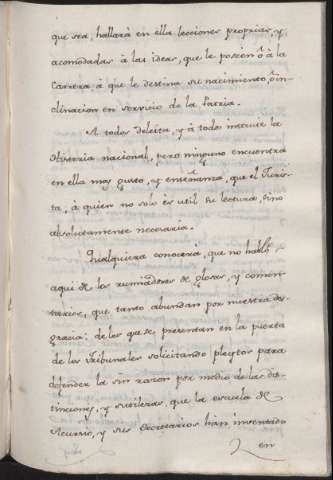 que sea, hallará en ella lecciones proprias, y
acomodadas á las ideas, que le poseen ó á la
Carrera á que le destina su nacimiento, ó in-
clinacion en servicio de la Patria.
A todos deleita, y á todos instruie la
Historia nacional, pero ninguno encuentra
en ella mas gusto, y enseñanza, que el Juris-
ta, á quien no solo es util su lectura, sino
absolutamente necesaria.
Qualquiera conocerá, que no hablo
aqui de los rumiadores de glosas, y comen-
tarios, que tanto abundan por nuestra des-
gracia; de los que se presentan en la puerta
de los Tribunales solicitando pleytos para
defender la sin razon por medio de las dis-
tinciones, y sutilezas, que la escuela de
Acursio, y sus Sectarios han inventado
en